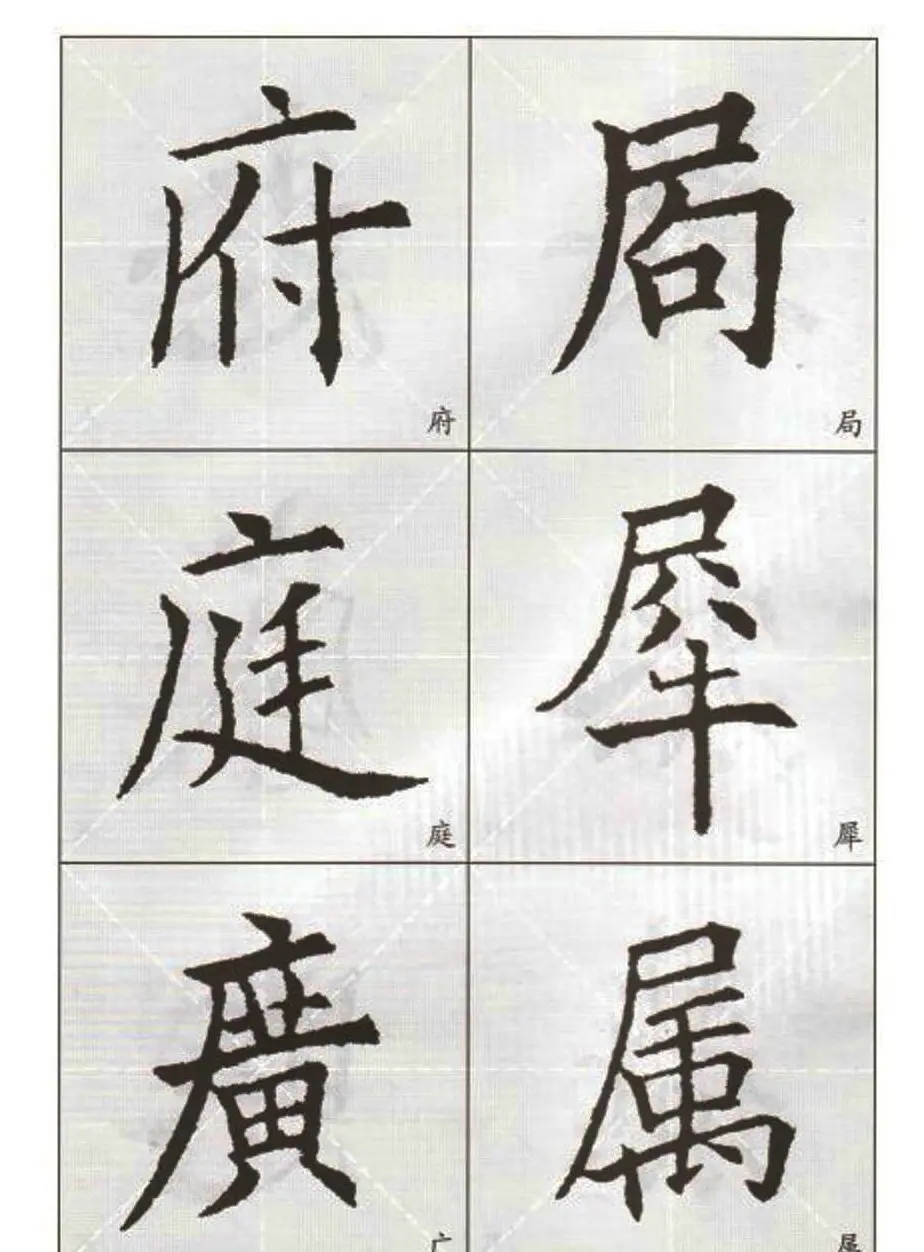 府 局
府 局
庭 犀
庭 犀
廣 属
广 属